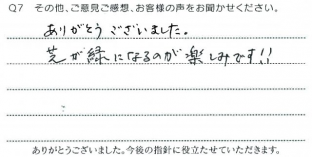 Q7 その他、ご意見ご感想、お客様の声をお聞かせください。
ありがとうございました。
芝が緑になるのが楽しみです!!
ありがとうございました。今後の指針に役立たせていただきます。